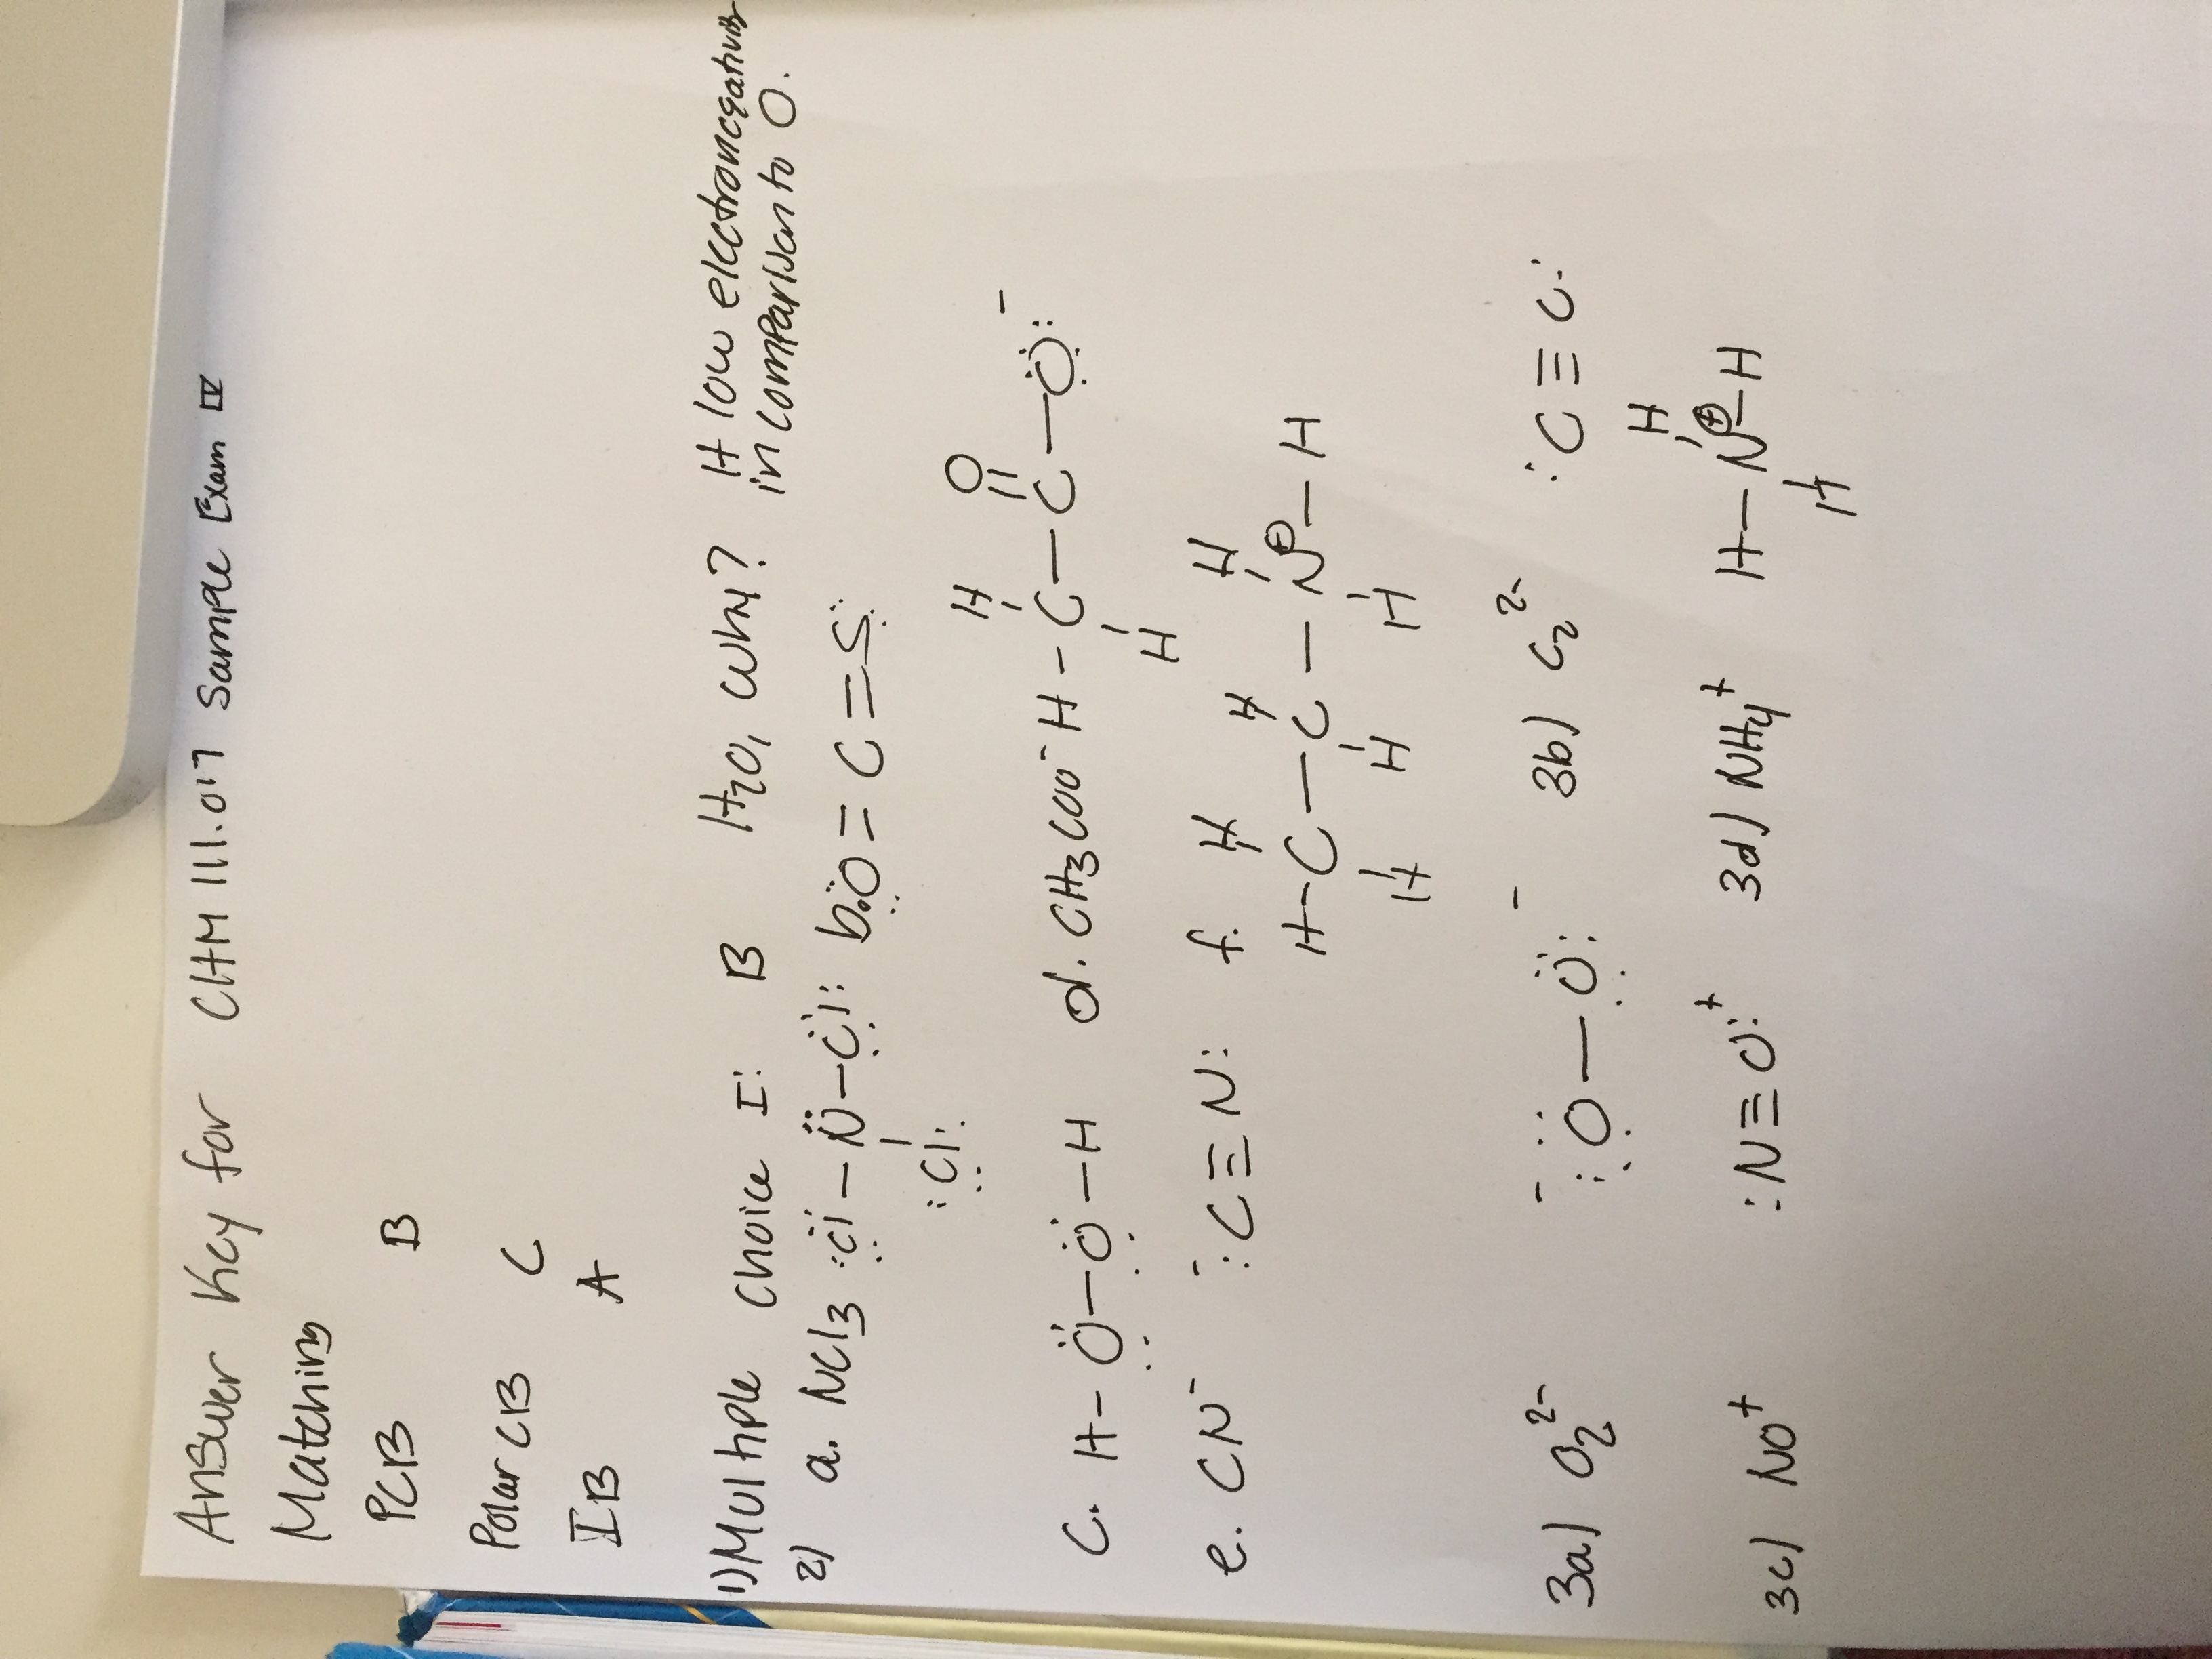 Answer Key for CHM 111.017 Sample Exam IV
Matching
PCB B
Polar CB C
IB A
1) Multiple Choice I: B H2O, why? H low electronegativity
in comparison to O.
2) a. NCl3 :Cl̈ — N̈ — Cl̈: b. :Ö = C = S̈:
|
:Cl:
H O
| || -
c. H - Ö — Ö — H d. CH3COO- H - C — C — Ö:
|
H
e. CN- -:C ≡ N: f. H H H
| | |
H - C — C — N⊕ — H
| | |
H H H
3a) O2 2- -:Ö — Ö:- 3b) C2 2- :C ≡ C:
H
|
3c) NO+ :N ≡ O:+ 3d) NH4+ H — N⊕ — H
|
H